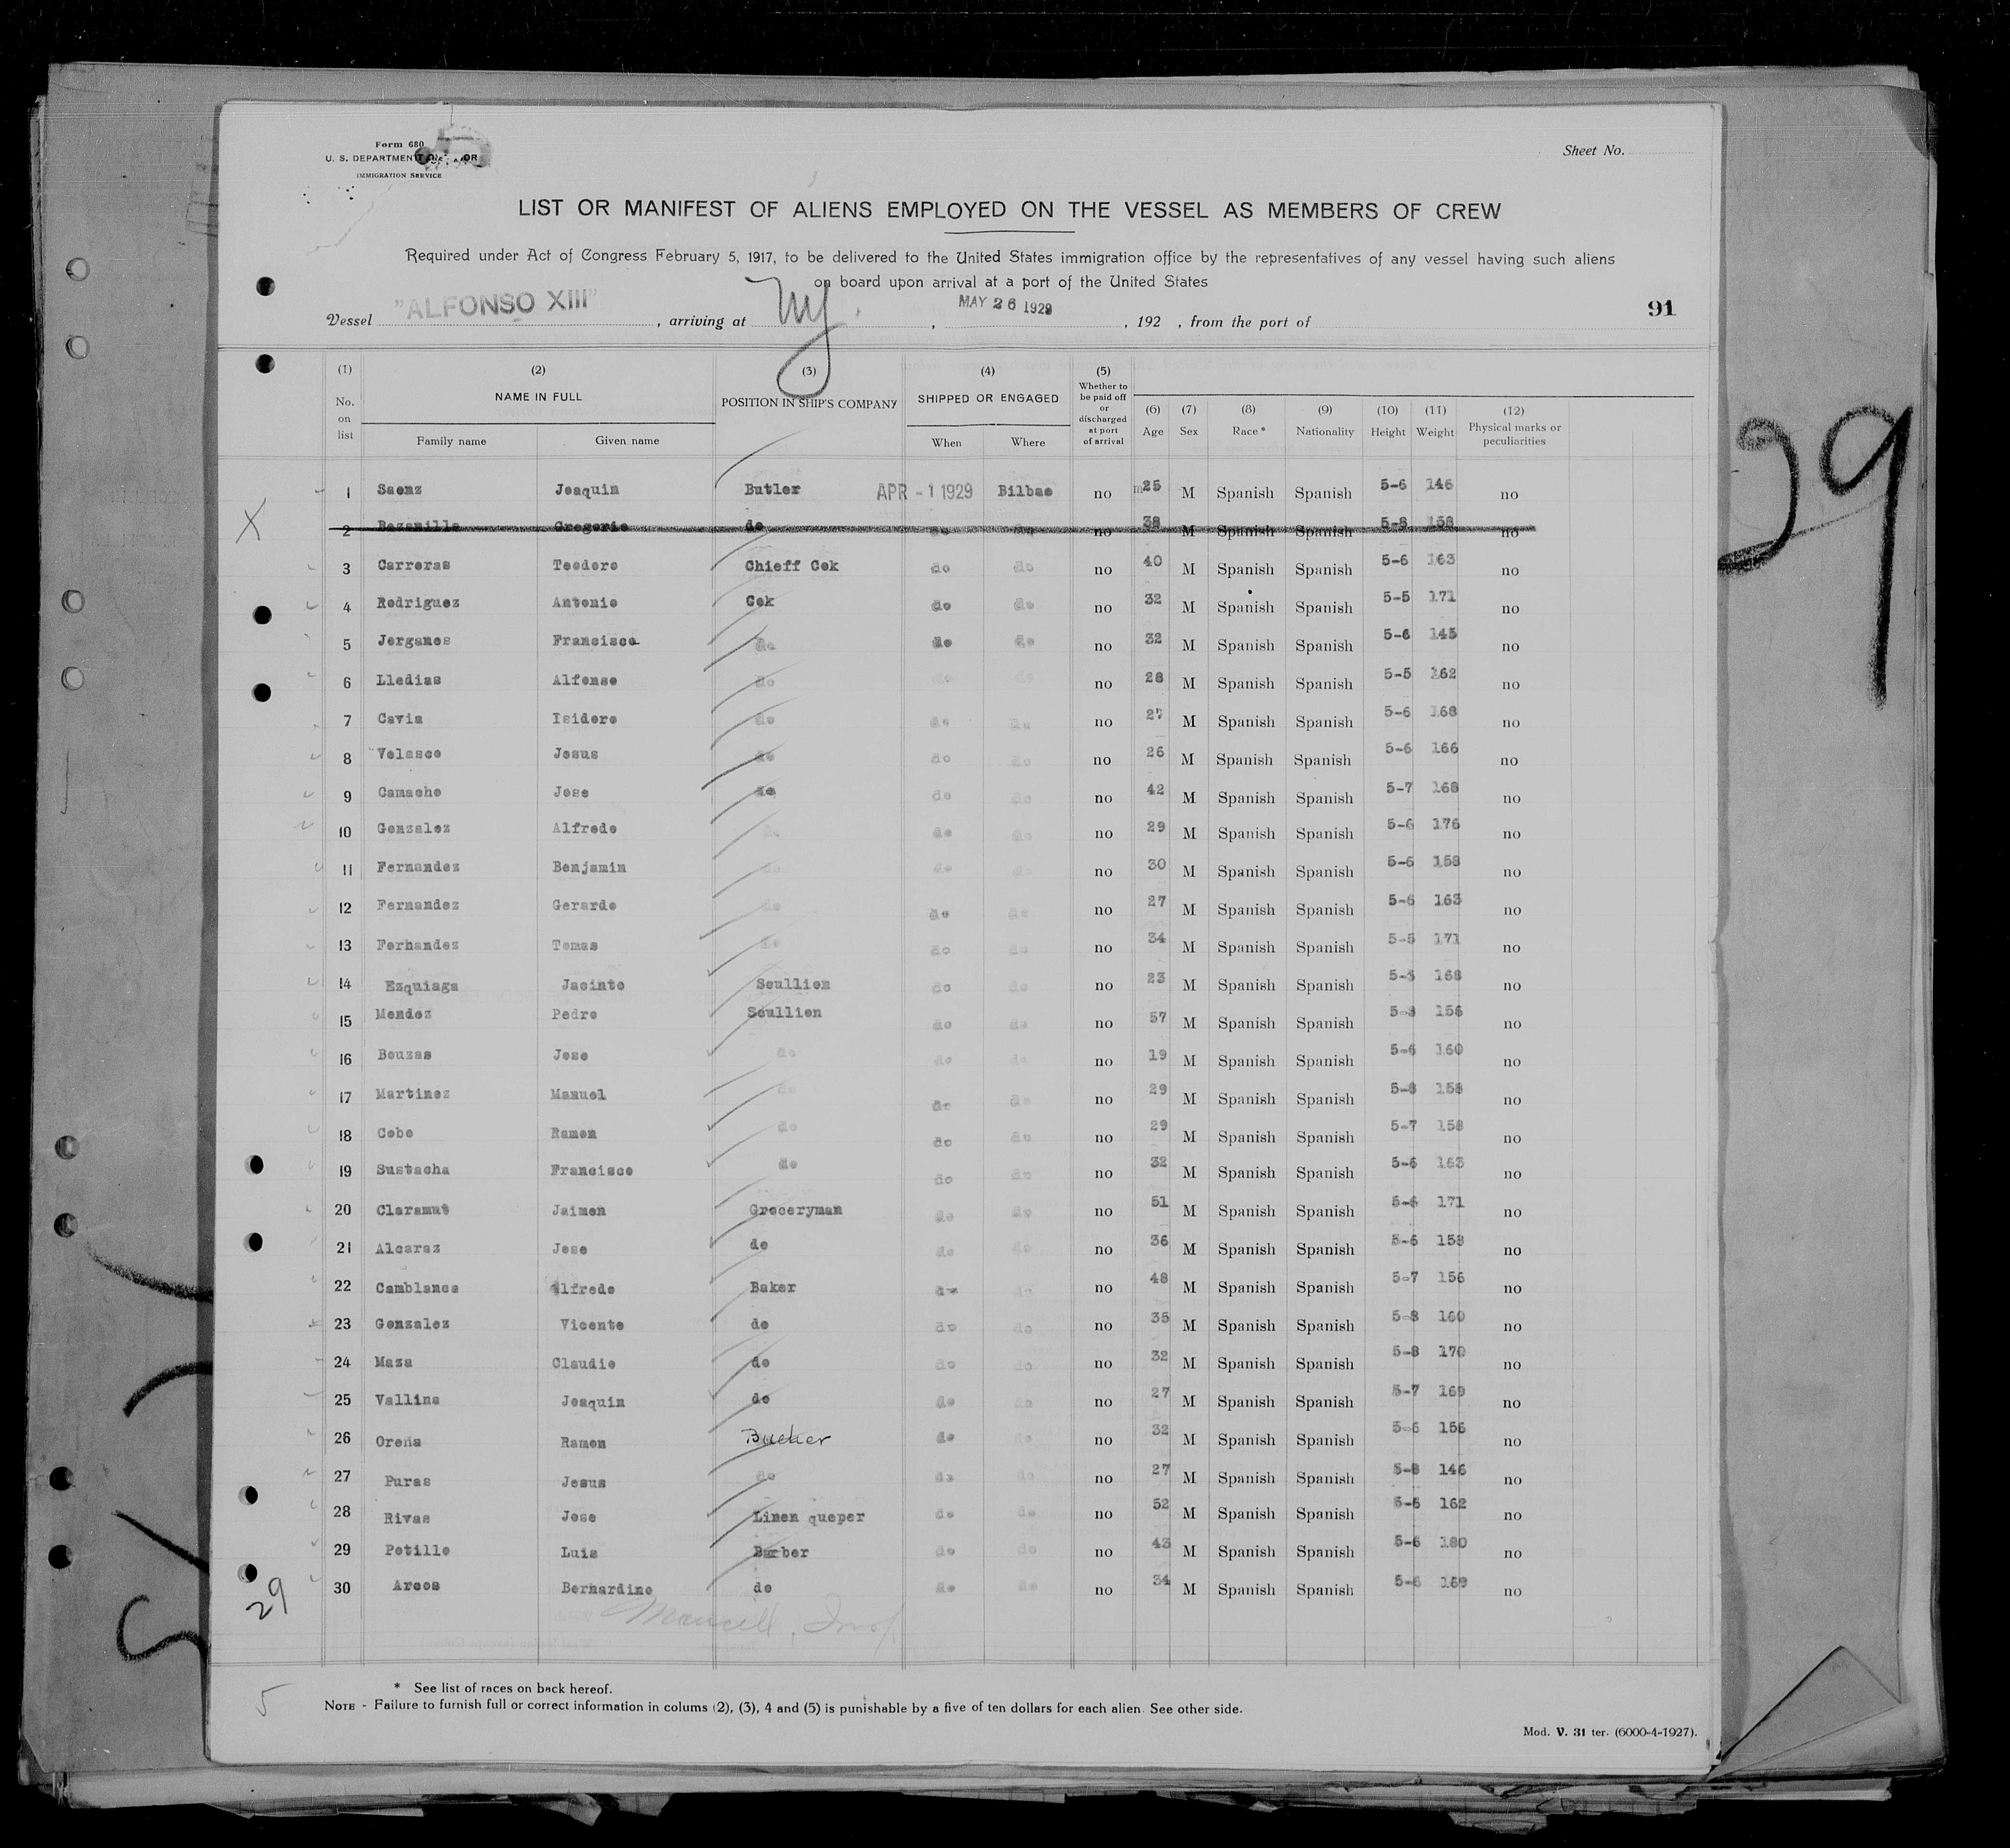 Form 680
Sheet No.
U. S. DEPARTMENT OF LABOR
IMMIGRATION SERVICE
LIST OR MANIFEST OF ALIENS EMPLOYED ON THE VESSEL AS MEMBERS OF CREW
Required under Act of Congress February 5, 1917, to be delivered to the United States immigration office by the representatives of any vessel having such aliens
on board upon arrival at a port of the United States
Vessel "ALFONSO XIII", arriving at Ny., MAY 26 1929, 192 , from the port of
91
(1) No. on list (2) NAME IN FULL Family name Given name (3) POSITION IN SHIP'S COMPANY (4) SHIPPED OR ENGAGED When Where (5) Whether to be paid off or discharged at port of arrival (6) Age (7) Sex (8) Race * (9) Nationality (10) Height (11) Weight (12) Physical marks or peculiarities
1 Saenz Joaquin Butler APR - 1 1929 Bilbao no 25 M Spanish Spanish 5-6 146 no
X 2 Bezanilla Gregorio do do do no 38 M Spanish Spanish 5-8 158 no
3 Carreras Teodoro Chieff Cok do do no 40 M Spanish Spanish 5-6 163 no
4 Rodriguez Antonio Cok do do no 32 M Spanish Spanish 5-5 171 no
5 Jerganes Francisco do do do no 32 M Spanish Spanish 5-6 145 no
6 Lledias Alfonso do do do no 28 M Spanish Spanish 5-5 162 no
7 Cavia Isidoro do do do no 27 M Spanish Spanish 5-6 168 no
8 Velasco Jesus do do do no 26 M Spanish Spanish 5-6 166 no
9 Camacho Jose do do do no 42 M Spanish Spanish 5-7 168 no
10 Gonzalez Alfredo do do do no 29 M Spanish Spanish 5-6 176 no
11 Fernandez Benjamin do do do no 30 M Spanish Spanish 5-6 158 no
12 Fernandez Gerardo do do do no 27 M Spanish Spanish 5-6 163 no
13 Fernandez Tomas do do do no 34 M Spanish Spanish 5-5 171 no
14 Ezquiaga Jacinto Scullion do do no 23 M Spanish Spanish 5-5 168 no
15 Mendez Pedro Scullion do do no 57 M Spanish Spanish 5-8 156 no
16 Bouzas Jose do do do no 19 M Spanish Spanish 5-6 160 no
17 Martinez Manuel do do do no 29 M Spanish Spanish 5-8 158 no
18 Cobo Ramon do do do no 29 M Spanish Spanish 5-7 158 no
19 Sustacha Francisco do do do no 32 M Spanish Spanish 5-6 163 no
20 Claramut Jaimen Groceryman do do no 51 M Spanish Spanish 5-6 171 no
21 Alcaraz Jose do do do no 36 M Spanish Spanish 5-6 158 no
22 Camblanca Alfredo Baker do do no 48 M Spanish Spanish 5-7 156 no
23 Gonzalez Vicente do do do no 35 M Spanish Spanish 5-8 160 no
24 Maza Claudio do do do no 32 M Spanish Spanish 5-8 170 no
25 Vallina Joaquin do do do no 27 M Spanish Spanish 5-7 169 no
26 Oreña Ramon Bucher do do no 32 M Spanish Spanish 5-6 156 no
27 Puras Jesus do do do no 27 M Spanish Spanish 5-8 146 no
28 Rivas Jose Linen queper do do no 52 M Spanish Spanish 5-6 162 no
29 Potillo Luis Barber do do no 43 M Spanish Spanish 5-6 180 no
30 Arcos Bernardino do do do no 34 M Spanish Spanish 5-6 169 no
29
5
* See list of races on back hereof.
NOTE - Failure to furnish full or correct information in colums (2), (3), 4 and (5) is punishable by a five of ten dollars for each alien. See other side.
Mod. V. 31 ter. (6000-4-1927).
29